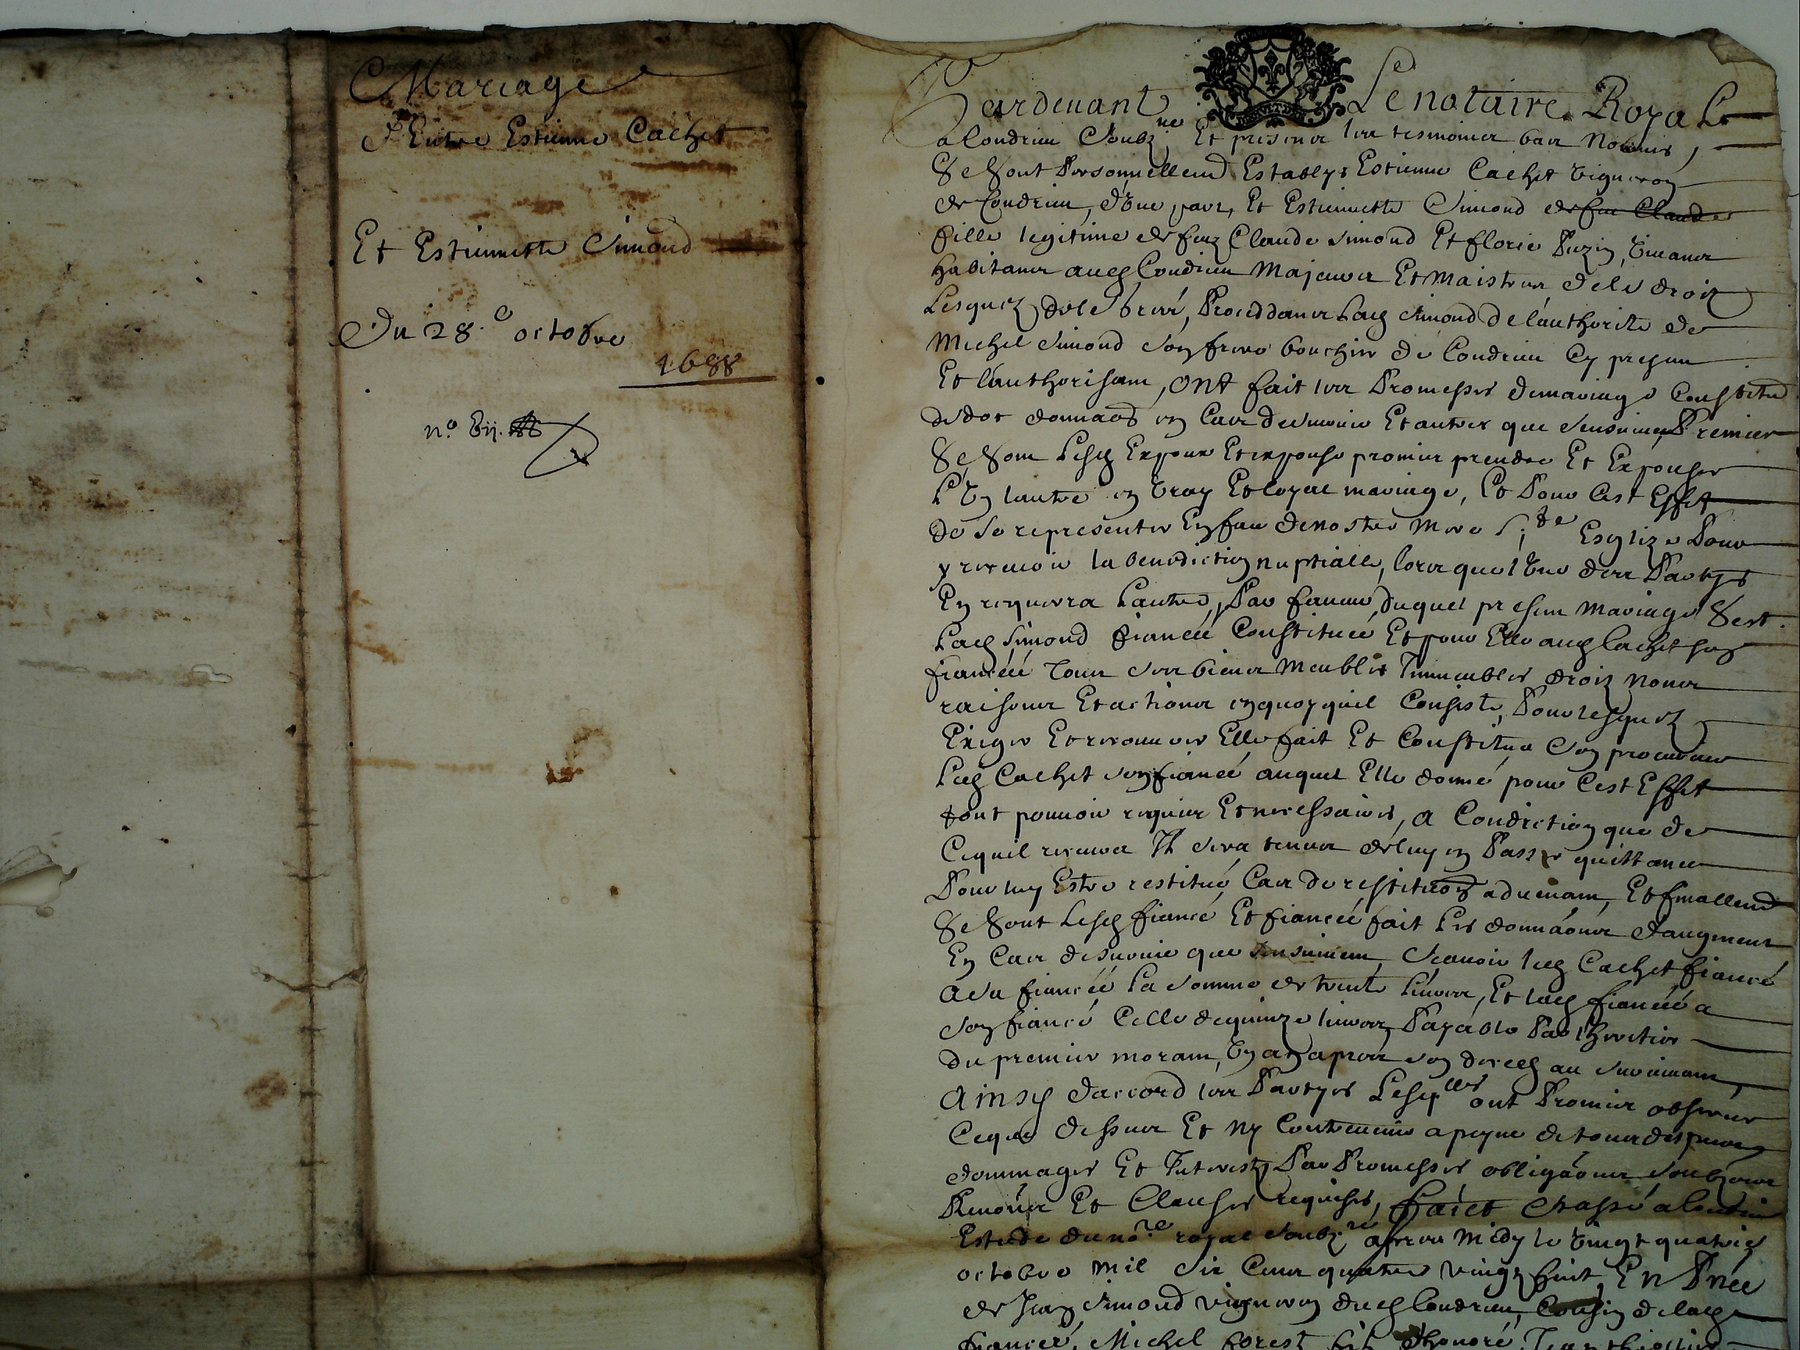 Mariage
D'Entre Estienne Cachet
Et Estiennette Simond
Du 28.e octobre
1688
n.o Vij.
Pardevant Le notaire Royal
a Condrieu Soubz.ne Et presence les tesmoings bas Nommés,
Se Sont Personnellemt Establys Estienne Cachet vigneron
de Condrieu, d'une part, Et Estiennette Simond de feu Claude
fille legitime de feuz Claude Simond Et florie Puzin, vivants
habitants aud Condrieu Majeurs Et Maistres de ses droitz
Lesquelz de leur gré, Proceddant Lad Simond de l'authorité de
Michel Simond son frere boucher de Condrieu Cy present
Et l'authorisant, ONt fait les Promesses de mariage Constitu
de dot donnaons en Cas de survie Et autres que s'ensuivent, Premier
Se Sont Lesd Espoux Et espouse promis prendre Et Espouser
L'Un l'autre en vray Et loyal mariage, Et Pour Cest Effet
de se representer En face de nostre Mere S.te Esglize Pour
y recevoir la benediction nuptialle, lors que l'Une des Partyes
En requerra L'autre, Par faveur duquel present Mariage S'est
Lad Simond fiancée Constituée Et pour Elle aud Cachet son
fiancéé Tous ses biens Meubles Immeubles droitz Noms
raisons Et actions en quoy quil Consiste, Pour lesquelz
Exiger Et recouvrer Elle fait Et Constitue son procureur
Led Cachet son fiancéé auquel Elle donne pour Cest Effet
tout pouvoir requis Et necessaires, a Condiction que de
Cequil recevra Il sera tenu de luy en Passer quittance
Pour luy Estre restitué Cas de restituon advenant, Et finallemt
Se Sont Lesd fiancé Et fiancéé fait Les donnaons d'augment
En Cas de survie que s'ensuivent, Scavoir led Cachet fiancé
a sa fiancéé La somme de trente Livres, Et lad fiancéé a
son fiancé Celle de quinze livres, Payable Par l'heritier
du premier mourant, Un an apres son decedz au survivant,
Ainsy d'accord les Partyes Lesq.lles ont Promis observer
Ceque dessus Et Ny Contrevenir a peyne de tous despens
dommages Et Interestz Par Promesses obligaons soubz
Renons Et Clauses requises, faict Et Passé a Condrieu
Estude du no.re royal Soubz.né apres Midy le vingt quatrie
octobre mil six Cens quatre vingz huit, En Pnce
de Jean Simond vigneron dud Condrieu, Cousin de lad
fiancéé, Michel forest fils d'honoré,